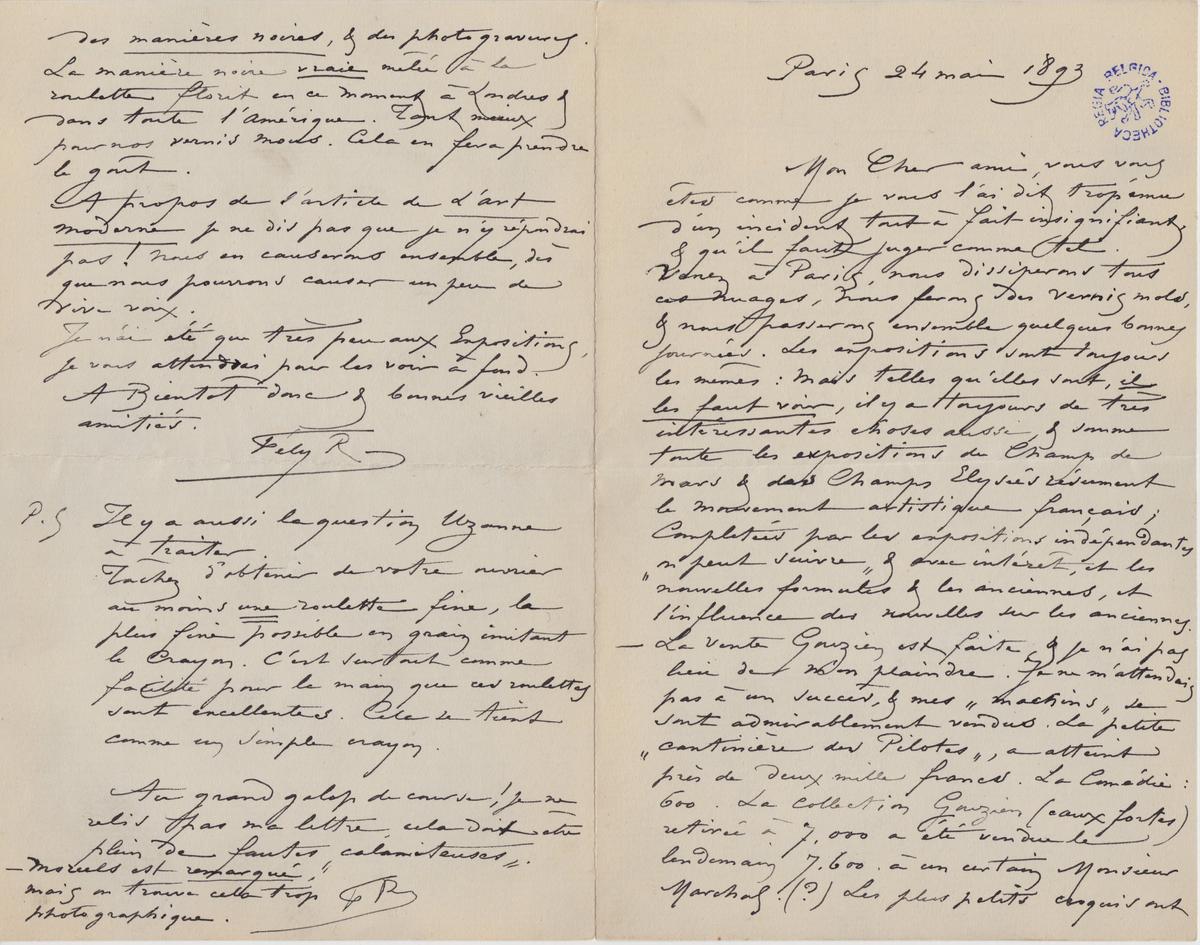 Paris 24 mai 1893
BIBLIOTHECA REGIA BELGICA
Mon Cher ami, vous vous
êtes comme je vous l'ai dit trop ému
d'un incident tout à fait insignifiant,
& qu'il faut juger comme tel.
Venez a Paris, nous dissiperons tous
ces nuages, nous ferons des vernis mols,
& nous passerons ensemble quelques bonnes
journées. Les expositions sont toujours
les mêmes : mais telles qu'elles sont, il
les faut voir, il y a toujours de très
intéressantes choses aussi, & somme
toute les expositions du Champ de
Mars & des Champs Elysées résument
le mouvement artistique français ;
Complétées par les expositions indépendantes
„ on peut suivre „ & avec intérêt, et les
nouvelles formules & les anciennes, et
l'influence des nouvelles sur les anciennes.
— La vente Gouzien est faite, & je n'ai pas
lieu de m'en plaindre. Je ne m'attendais
pas à un succès, & mes „ machins „ se
sont admirablement vendus. La petite
„ cantinière des Pilotes „, a atteint
près de deux mille francs. La Comédie :
600. La collection Gouzien (eaux fortes)
retirée à 7,000 a été vendue le
lendemain 7,600 à un certain Monsieur
Marchal. (?) Les plus petits croquis ont
des manières noires, & des photogravures.
La manière noire vraie mêlée à la
roulette florit en ce moment à Londres &
dans toute l'Amérique. Tant mieux
pour nos vernis mous. Cela en fera prendre
le goût.
A propos de l'article de L'art
moderne je ne dis pas que je n'y répondrai
pas ! Nous en causerons ensemble, dès
que nous pourrons causer un peu de
vive voix.
Je n'ai été que très peu aux Expositions,
je vous attendrai pour les voir à fond.
A Bientot donc & bonnes vieilles
amitiés.
Fély R
P.S Il y a aussi la question Uzanne
à traiter
Tachez d'obtenir de votre ouvrier
au moins une roulette fine, la
plus fine possible en grain imitant
le Crayon. C'est surtout comme
facilité pour la main que ces roulettes
sont excellentes. Cela se tient
comme un simple crayon.
Au grand galop de course ! Je ne
relis pas ma lettre, cela doit être
plein de fautes „ calamiteuses „.
— est remarqué,
mais on trouve cela trop
photographique.
FR